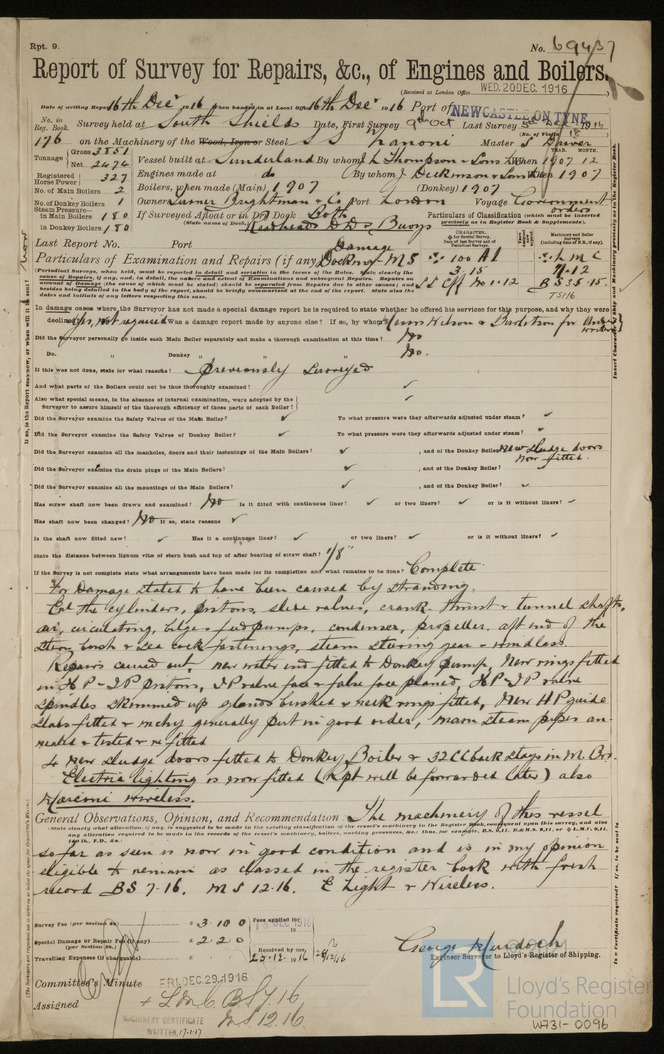 Rpt. 9.
No. 69437
Report of Survey for Repairs, &c., of Engines and Boilers.
(Received at London Office WED. 20 DEC. 1916
Date of writing Report 16th Decr 1916 When handed in at Local Office 16th Decr 1916 Port of NEWCASTLE ON TYNE
No. in Reg. Book. Survey held at South Shields Date, First Survey 9th Oct Last Survey 1916
176 on the Machinery of the Wood, Iron or Steel S S Master
Tonnage Gross 3851 Net 2474 Vessel built at Sunderland By whom J L Thompson & Sons When 1907 12
Registered Horse Power 327 Engines made at do By whom J Dickinson & Sons When 1907
No. of Main Boilers 2 Boilers, when made (Main) 1907 (Donkey) 1907
No. of Donkey Boilers 1 Owners Turner Brightman & Co Port London Voyage Government orders
Steam Pressure in Main Boilers 180 If Surveyed Afloat or in Dry Dock Both
in Donkey Boilers 180 Readheads D.D. & Buoys
Particulars of Classification (which must be inserted precisely as in Register Book & Supplements).
Last Report No. Port
Particulars of Examination and Repairs (if any) Damage Docking M S
100 A1
3.15
S S Cff No 1-12
L M C
7.12
B S 3.15
In damage cases where the Surveyor has not made a special damage report he is required to state whether he offered his services for this purpose, and why they were
declined Yes, not required Was a damage report made by anyone else? If so, by whom
Did the Surveyor personally go inside each Main Boiler separately and make a thorough examination at this time? No
Do. Donkey " " " " No.
If this was not done, state for what reasons? Previously Surveyed
And what parts of the Boilers could not be thus thoroughly examined? ✓
Also what special means, in the absence of internal examination, were adopted by the Surveyor to assure himself of the thorough efficiency of those parts of each Boiler? ✓
Did the Surveyor examine the Safety Valves of the Main Boiler? ✓ To what pressure were they afterwards adjusted under steam? ✓
Did the Surveyor examine the Safety Valves of Donkey Boiler? ✓ To what pressure were they afterwards adjusted under steam? ✓
Did the Surveyor examine all the manholes, doors and their fastenings of the Main Boilers? ✓ , and of the Donkey Boiler? New sludge doors now fitted.
Did the Surveyor examine the drain pings of the Main Boilers? ✓ , and of the Donkey Boiler? ✓
Did the Surveyor examine all the mountings of the Main Boilers? ✓ , and of the Donkey Boiler? ✓
Has screw shaft now been drawn and examined? No Is it fitted with continuous liner? ✓ or two liners? ✓ or is it without liners? ✓
Has shaft now been changed? No If so, state reasons ✓
Is the shaft now fitted new? ✓ Has it a continuous liner? ✓ or two liners? ✓ or is it without liners? ✓
State the distance between lignum vitæ of stern bush and top of after bearing of screw shaft? 1/8"
If the Survey is not complete state what arrangements have been made for its completion and what remains to be done? Complete
For Damage stated to have been caused by stranding.
the cylinders, pistons, slide valves, crank thrust & tunnel shafts,
air, circulating, bilge & feed pumps, condenser, propeller, aft end of the
stern bush & sea cock fastenings, steam steering gear & windlass.
Repairs carried out, new water end fitted to Donkey pump, New rings fitted
in H P - I P pistons, I P valve face & false face planed, H P - I P valve
spindles skimmed up glands bushed & neck rings fitted, New H P guide
slabs fitted & mchy generally put in good order, main steam pipes an-
nealed & tested & refitted
4 new sludge doors fitted to Donkey Boiler & 32 CC back stays in M. Brs.
Electric lighting is now fitted (Rpt will be forwarded later) also
Marconi Wireless.
General Observations, Opinion, and Recommendation The machinery of this vessel
so far as seen is now in good condition and is in my opinion
eligible to remain as classed in the register book with fresh
record BS 7.16. M S 12.16. E Light & Wireless.
Survey Fee (per Section 29) £ 3 10 0 Fees applied for 18 DEC 1916
Special Damage or Repair Fee (if any) (per Section 29.) £ 2 2 0 Received by me,
Travelling Expenses (if chargeable) £
George Murdoch
Engineer Surveyor to Lloyd's Register of Shipping.
Committee's Minute FRI. DEC. 29. 1916
Assigned + L M C B S 7.16
M S 12.16.
MACHINERY CERTIFICATE
WRITTEN, 17.1.17
LR
Lloyd's Register
Foundation
W731-0096